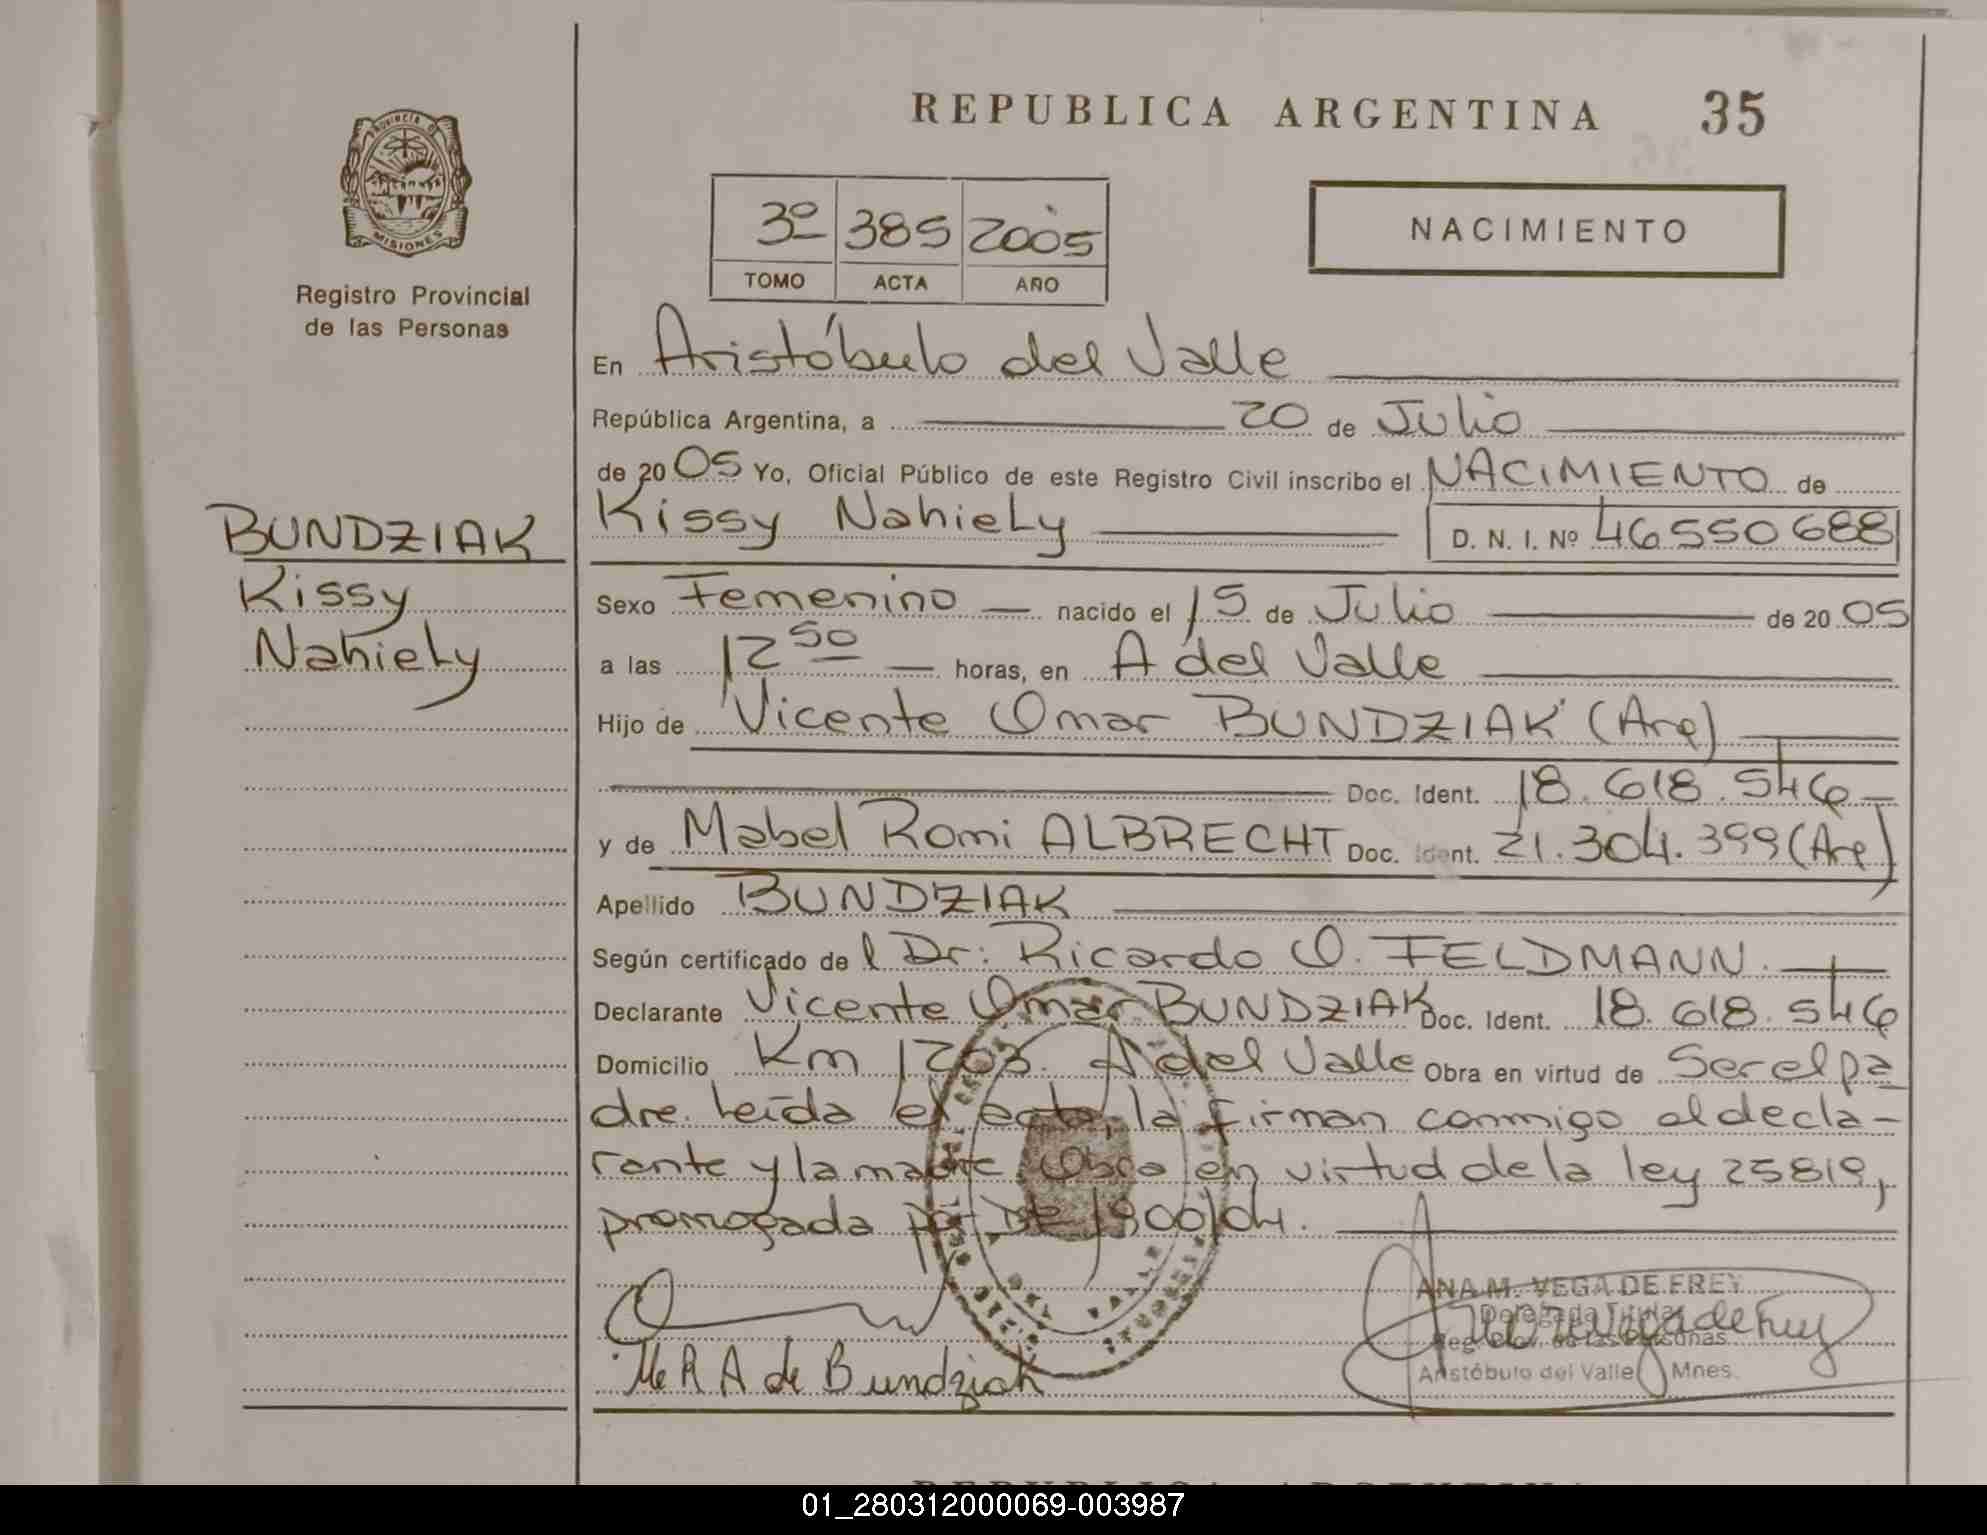 REPUBLICA ARGENTINA 35
PROVINCIA DE
MISIONES
Registro Provincial
de las Personas
3º 385 2005
TOMO ACTA AÑO
NACIMIENTO
En Aristóbulo del Valle
República Argentina, a 20 de Julio
de 2005 Yo, Oficial Público de este Registro Civil inscribo el NACIMIENTO de
BUNDZIAK
Kissy
Nahiely
Kissy Nahiely D. N. I. Nº 46550688
Sexo Femenino nacido el 15 de Julio de 2005
a las 12 50 horas, en A del Valle
Hijo de Vicente Omar BUNDZIAK (Arg)
Doc. Ident. 18.618.546
y de Mabel Romi ALBRECHT Doc. Ident. 21.304.399 (Arg)
Apellido BUNDZIAK
Según certificado del Dr: Ricardo O. FELDMANN.
Declarante Vicente Omar BUNDZIAK Doc. Ident. 18.618.546
Domicilio Km 1203. A del Valle Obra en virtud de Ser el pa
dre. Leída el acta, la firman conmigo el decla-
rante y la madre Obra en virtud de la ley 25819,
prorrogada por 1900/04.
ANA M. VEGA DE FREY
Delegada Titular
Reg. Prov. de las Personas
Aristóbulo del Valle Mnes.
M R A de Bundziak
01_280312000069-003987